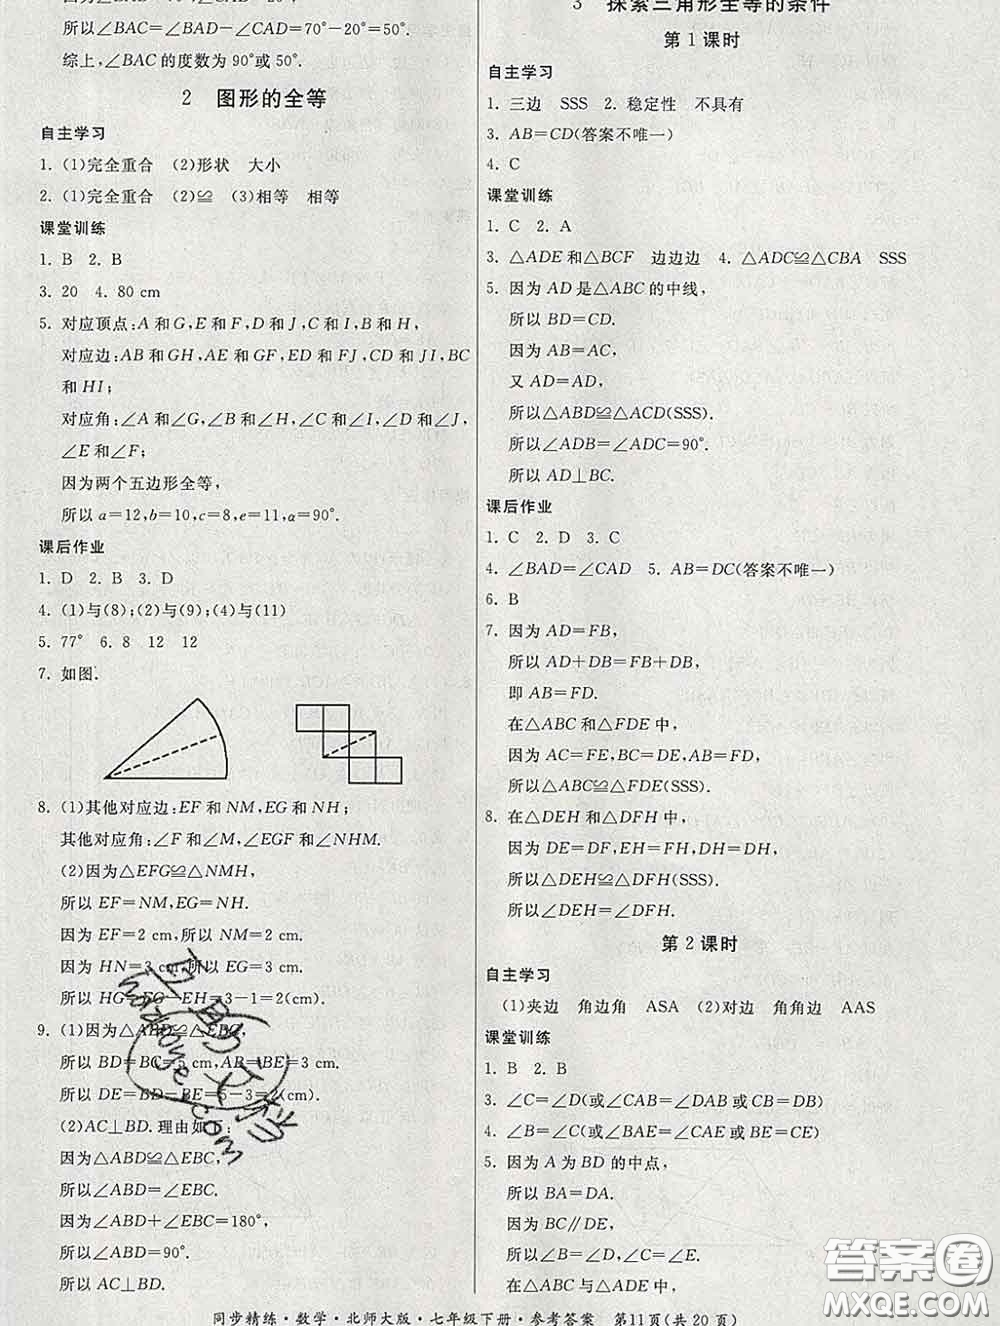 所以∠BAC=∠BAD-∠CAD=70°-20°=50°.
综上,∠BAC的度数为90°或50°.
2 图形的全等
自主学习
1. (1)完全重合 (2)形状 大小
2. (1)完全重合 (2)≌ (3)相等 相等
课堂训练
1. B 2. B
3. 20 4. 80 cm
5. 对应顶点:A和G,E和F,D和J,C和I,B和H,
对应边:AB和GH,AE和GF,ED和FJ,CD和JI,BC
和HI;
对应角:∠A和∠G,∠B和∠H,∠C和∠I,∠D和∠J,
∠E和∠F;
因为两个五边形全等,
所以a=12,b=10,c=8,e=11,α=90°.
课后作业
1. D 2. B 3. D
4. (1)与(8);(2)与(9);(4)与(11)
5. 77° 6. 8 12 12
7. 如图.
8. (1)其他对应边:EF和NM,EG和NH;
其他对应角:∠F和∠M,∠EGF和∠NHM.
(2)因为△EFG≌△NMH,
所以EF=NM,EG=NH.
因为EF=2 cm,所以NM=2 cm.
因为HN=3 cm,所以EG=3 cm.
所以HG=EG-EH=3-1=2(cm).
9. (1)因为△ABD≌△EBC,
所以BD=BC=5 cm,AB=BE=3 cm.
所以DE=BD-BE=5-3=2(cm).
(2)AC⊥BD.理由如下:
因为△ABD≌△EBC,
所以∠ABD=∠EBC.
因为∠ABD+∠EBC=180°,
所以∠ABD=90°.
所以AC⊥BD.
3 探索三角形全等的条件
第1课时
自主学习
1. 三边 SSS 2. 稳定性 不具有
3. AB=CD(答案不唯一)
4. C
课堂训练
1. C 2. A
3. △ADE和△BCF 边边边 4. △ADC≌△CBA SSS
5. 因为AD是△ABC的中线,
所以BD=CD.
因为AB=AC,
又AD=AD,
所以△ABD≌△ACD(SSS).
所以∠ADB=∠ADC=90°.
所以AD⊥BC.
课后作业
1. C 2. D 3. C
4. ∠BAD=∠CAD 5. AB=DC(答案不唯一)
6. B
7. 因为AD=FB,
所以AD+DB=FB+DB,
即AB=FD.
在△ABC和△FDE中,
因为AC=FE,BC=DE,AB=FD,
所以△ABC≌△FDE(SSS).
8. 在△DEH和△DFH中,
因为DE=DF,EH=FH,DH=DH,
所以△DEH≌△DFH(SSS).
所以∠DEH=∠DFH.
第2课时
自主学习
(1)夹边 角边角 ASA (2)对边 角角边 AAS
课堂训练
1. B 2. B
3. ∠C=∠D(或∠CAB=∠DAB或CB=DB)
4. ∠B=∠C(或∠BAE=∠CAE或BE=CE)
5. 因为A为BD的中点,
所以BA=DA.
因为BC∥DE,
所以∠B=∠D,∠C=∠E.
在△ABC与△ADE中,
同步精练·数学·北师大版·七年级下册·参考答案 第11页(共20页)
答案圈
MXQE.COM